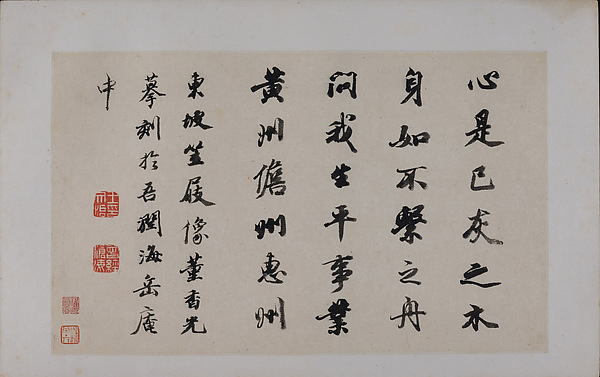 心是已灰之木
身如不繫之舟
問我生平事業
黃州儋州惠州
東坡笠屐像董香光
摹刻於吾潤海岳庵
中
曾經滄海